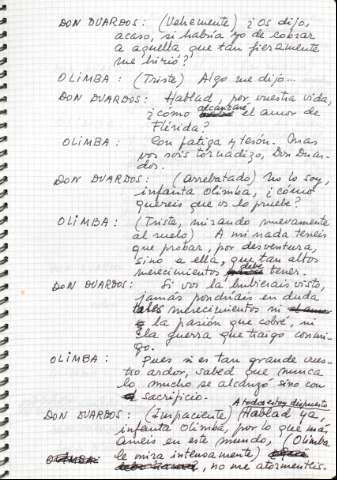 DON DUARDOS: (Vehemente) ¿Os dijo,
acaso, si habría yo de cobrar
a aquella que tan fieramente
me hirió?
OLIMBA: (Triste) Algo me dijo...
DON DUARDOS: Hablad, por vuestra vida,
¿cómo alcanzaré el amor de
Flérida?
OLIMBA: Con fatiga y tesón. Mas
vos sois tornadizo, Don Duar-
dos.
DON DUARDOS: (Arrebatado) No lo soy,
infanta Olimba, ¿cómo
queréis que os lo pruebe?
OLIMBA: (Triste, mirando nuevamente
al suelo) A mí nada tenéis
que probar, por desventura,
sino a ella, que tan altos
merecimientos debe tener.
DON DUARDOS: Si vos la hubierais visto,
jamás pondríais en duda
tales merecimientos ni
la pasión que cobré, ni
la guerra que traigo conmi-
go.
OLIMBA: Pues si es tan grande vues-
tro ardor, sabed que nunca
lo mucho se alcanzó sino con
sacrificio.
A todo estoy dispuesto
DON DUARDOS: (Impaciente) Hablad ya,
infanta Olimba, por lo que más
améis en este mundo, (Olimba
le mira intensamente)
OLIMBA: , no me atormentéis.